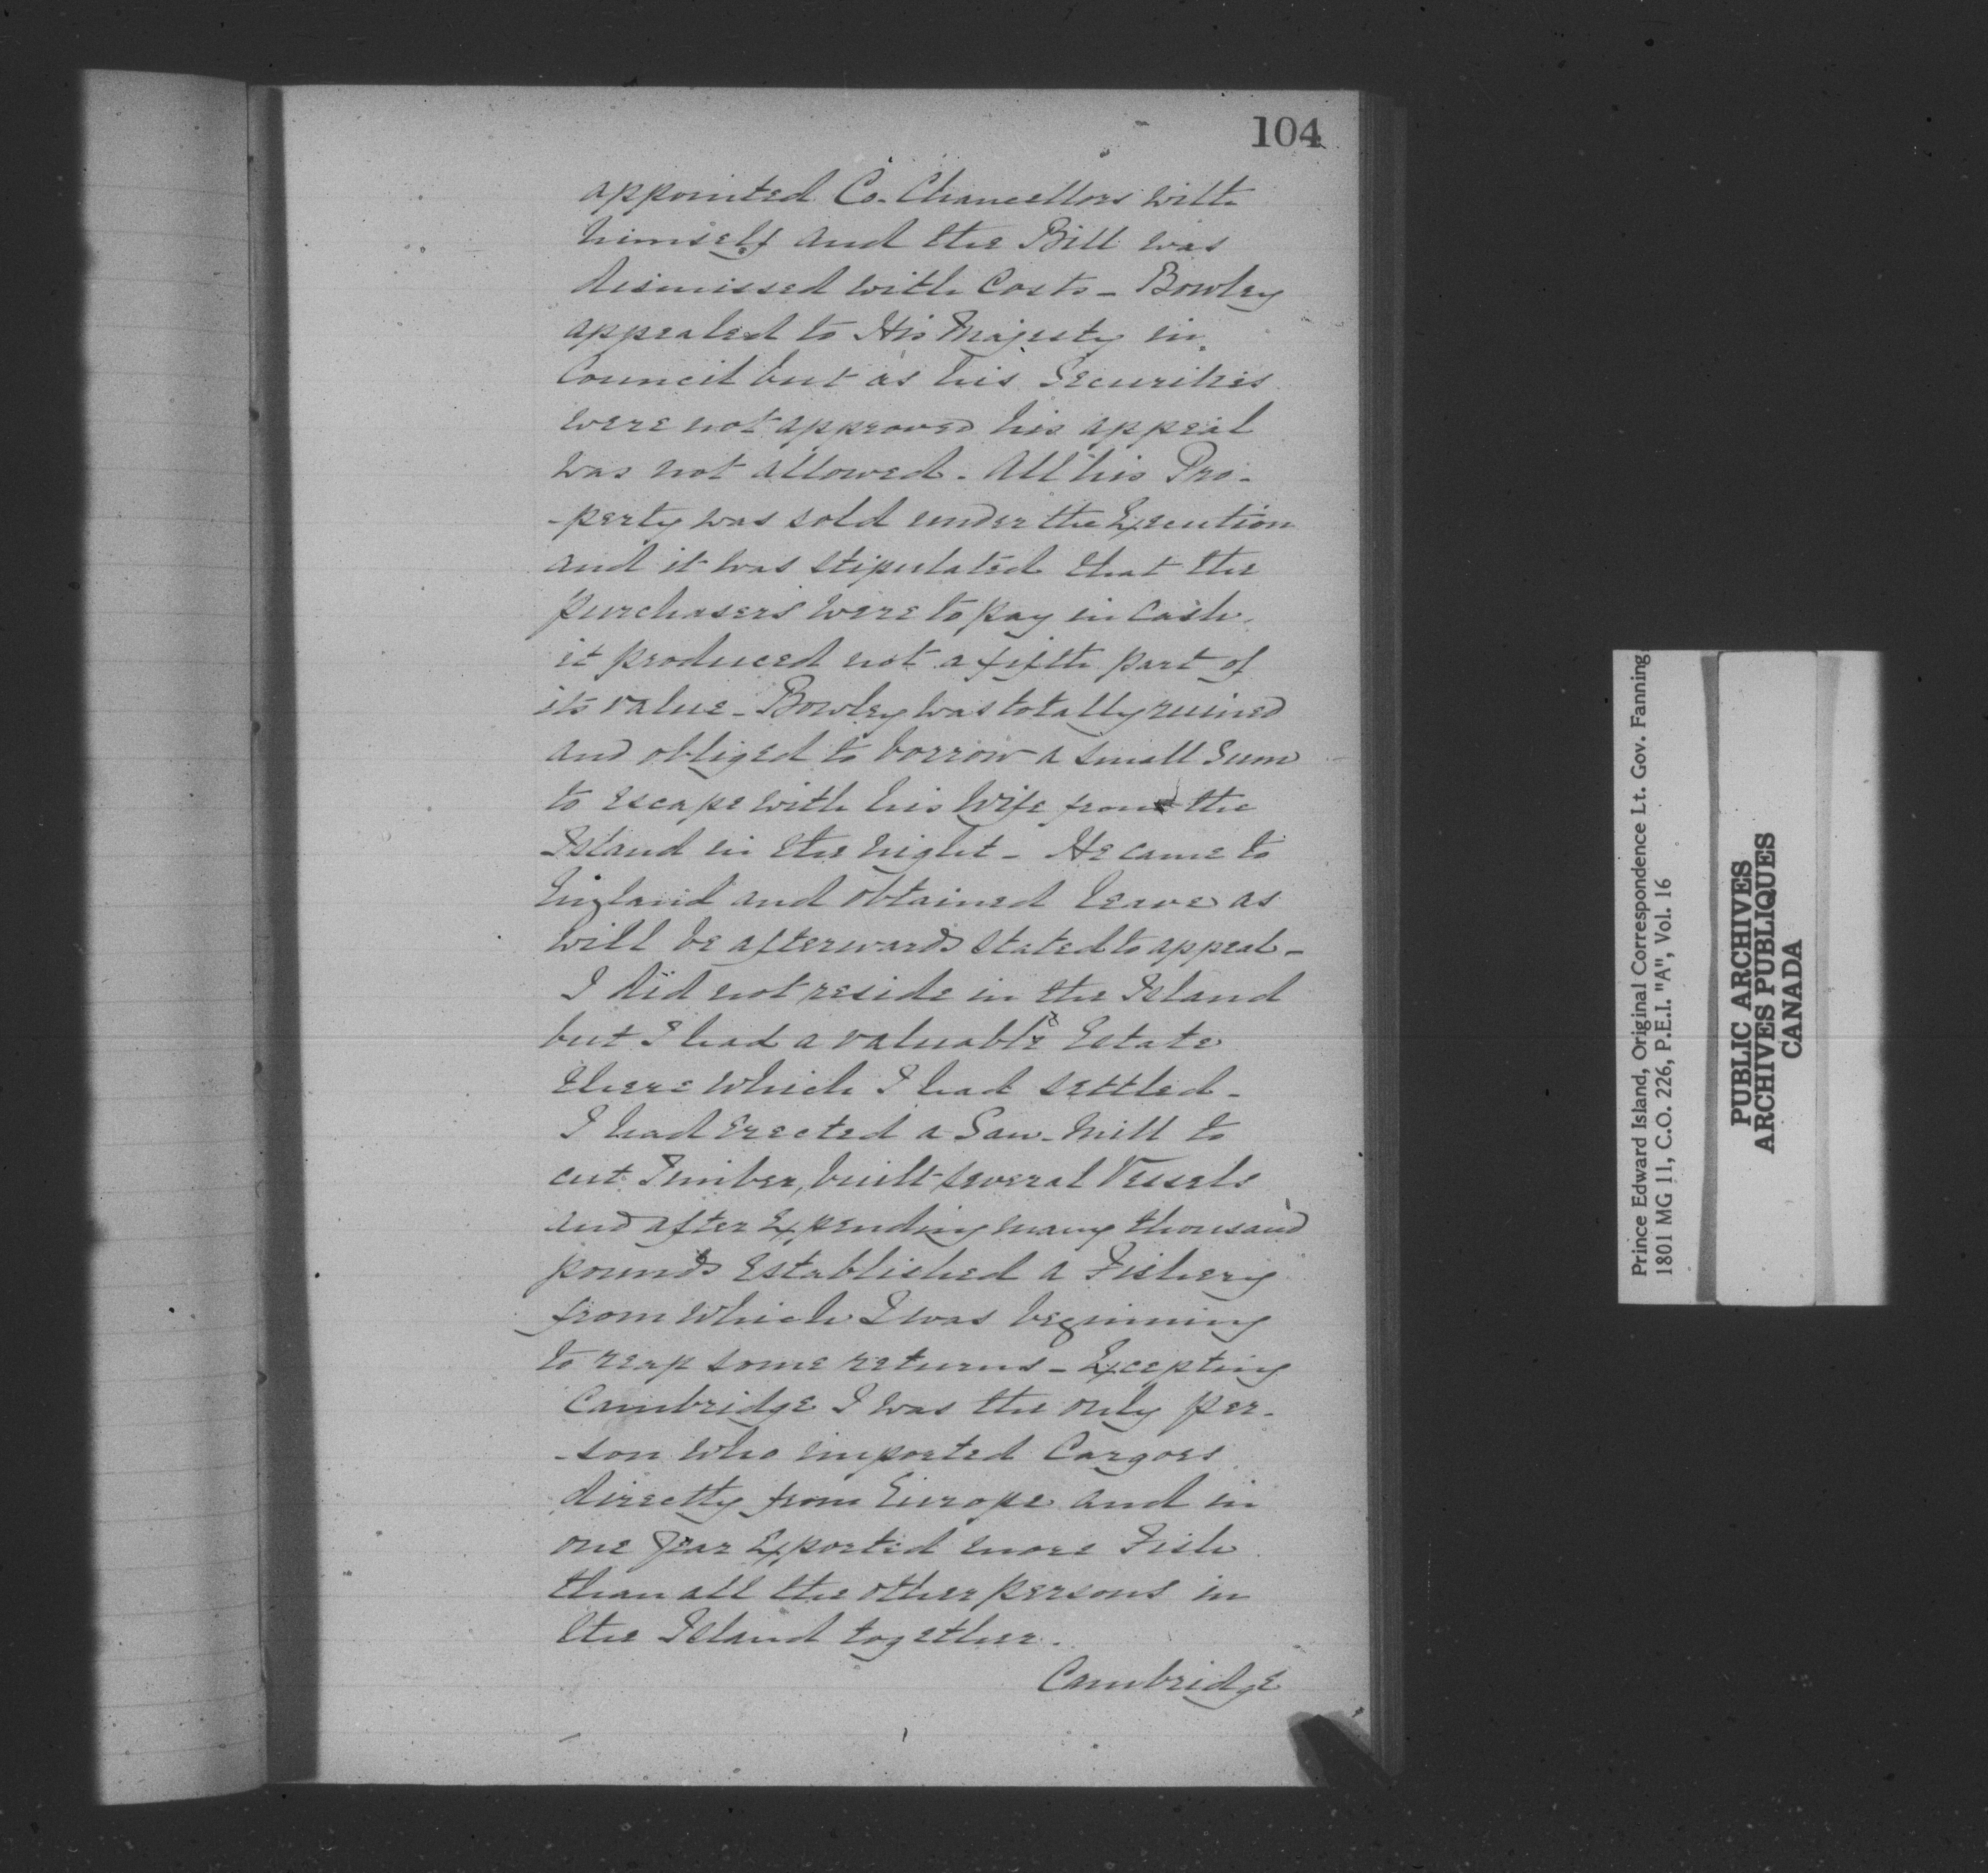 104
appointed Co. Chancellors with
himself and the Bill was
dismissed with Costs - Bowley
appealed to His Majesty in
Council but as his Securities
were not approved his appeal
was not allowed. All his Pro-
-perty was sold under the Execution
and it was stipulated that the
purchasers were to pay in cash.
it produced not a fifth part of
its value - Bowley was totally ruined
and obliged to borrow a small Sum
to escape with his Wife from the
Island in the night - He came to
England and obtained leave as
will be afterwards stated to appeal -
I did not reside in the Island
but I had a valuable Estate
there which I had settled -
I had Erected a Saw-Mill to
cut Timber, built several Vessels
and after Expending many thousand
pounds Established a Fishery
from which I was beginning
to reap some returns - Excepting
Cambridge I was the only per-
-son who imported Cargoes
directly from Europe and in
one year Exported more Fish
than all the other persons in
the Island together.
Cambridge
Prince Edward Island, Original Correspondence Lt. Gov. Fanning
1801 MG 11, C.O. 226, P.E.I. "A", Vol. 16
PUBLIC ARCHIVES
ARCHIVES PUBLIQUES
CANADA